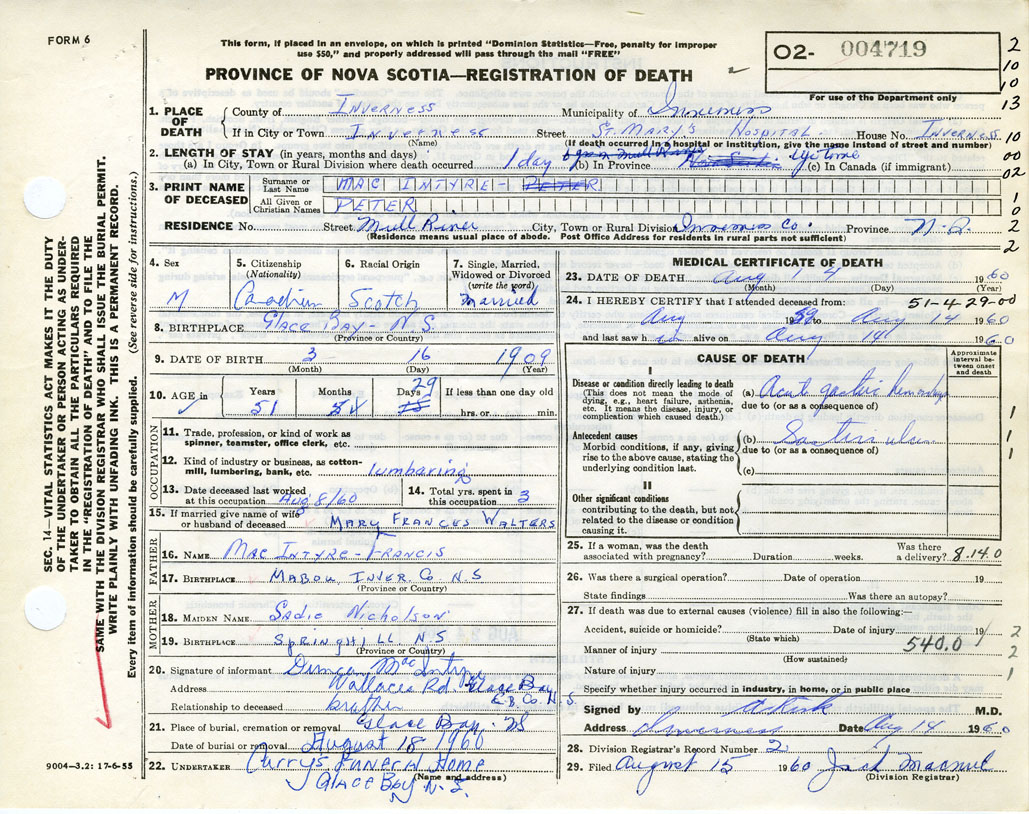 FORM 6
This form, if placed in an envelope, on which is printed "Dominion Statistics—Free, penalty for improper
use $50," and properly addressed will pass through the mail "FREE"
PROVINCE OF NOVA SCOTIA—REGISTRATION OF DEATH
O2- 004719
For use of the Department only
2
10
10
13
10
00
02
1
0
2
2
SEC. 14—VITAL STATISTICS ACT MAKES IT THE DUTY
OF THE UNDERTAKER OR PERSON ACTING AS UNDER-
TAKER TO OBTAIN ALL THE PARTICULARS REQUIRED
IN THE "REGISTRATION OF DEATH" AND TO FILE THE
SAME WITH THE DIVISION REGISTRAR WHO SHALL ISSUE THE BURIAL PERMIT.
WRITE PLAINLY WITH UNFADING INK. THIS IS A PERMANENT RECORD.
Every item of information should be carefully supplied. (See reverse side for instructions.)
1. PLACE OF DEATH
County of Inverness Municipality of Inverness
If in City or Town Inverness Street St. Mary's Hospital House No. Inverness
(Name) (If death occurred in a hospital or institution, give the name instead of street and number)
2. LENGTH OF STAY (in years, months and days)
(a) In City, Town or Rural Division where death occurred 1 day (b) In Province lifetime (c) In Canada (if immigrant)
3. PRINT NAME OF DECEASED
Surname or Last Name MAC INTYRE - PETER
All Given or Christian Names PETER
RESIDENCE No. Street Mull River City, Town or Rural Division Inverness Co. Province N.S.
(Residence means usual place of abode. Post Office Address for residents in rural parts not sufficient)
4. Sex M
5. Citizenship (Nationality) Canadian
6. Racial Origin Scotch
7. Single, Married, Widowed or Divorced (write the word) Married
8. BIRTHPLACE Glace Bay - N.S.
(Province or Country)
9. DATE OF BIRTH 3 16 1909
(Month) (Day) (Year)
10. AGE Years 51 Months 4 Days 29 If less than one day
hrs. or min.
OCCUPATION
11. Trade, profession, or kind of work as
spinner, teamster, office clerk, etc.
12. Kind of industry or business, as cotton-
mill, lumbering, bank, etc. lumbering
13. Date deceased last worked
at this occupation Aug 8/60
14. Total yrs. spent in
this occupation 3
15. If married give name of wife
or husband of deceased Mary Frances Walters
FATHER
16. NAME Mac Intyre - Francis
17. BIRTHPLACE Mabou, Inver. Co N.S
(Province or Country)
MOTHER
18. MAIDEN NAME Sadie Nicholson
19. BIRTHPLACE Springhill N S
(Province or Country)
20. Signature of informant Mac Intyre
Address Wallaces Rd Glace Bay
C.B. Co. N.S.
Relationship to deceased brother
21. Place of burial, cremation or removal Glace Bay - NS
Date of burial or removal August 18 1960
22. UNDERTAKER Curry's Funeral Home
(Name and address)
Glace Bay N.S.
9004—3.2: 17-6-55
MEDICAL CERTIFICATE OF DEATH
23. DATE OF DEATH Aug 14 1960
(Month) (Day) (Year)
24. I HEREBY CERTIFY that I attended deceased from: 51-4-29-00
Aug 1959 to Aug 14 1960
and last saw h im alive on Aug 14 1960
CAUSE OF DEATH
Approximate interval between onset and death
I
Disease or condition directly leading to death
(This does not mean the mode of
dying, e.g., heart failure, asthenia,
etc. It means the disease, injury, or
complication which caused death.)
(a) Acute gastric hemorrhage
due to (or as a consequence of)
1
Antecedent causes
Morbid conditions, if any, giving
rise to the above cause, stating the
underlying condition last.
(b) ulcer
due to (or as a consequence of)
(c)
1
1
II
Other significant conditions
contributing to the death, but not
related to the disease or condition
causing it.
25. If a woman, was the death
associated with pregnancy? Duration weeks. Was there
a delivery? 8.14.0
26. Was there a surgical operation? Date of operation 19
State findings Was there an autopsy?
27. If death was due to external causes (violence) fill in also the following:—
Accident, suicide or homicide? Date of injury 19
(State which)
540.0
Manner of injury
(How sustained)
Nature of injury
2
2
1
Specify whether injury occurred in industry, in home, or in public place
Signed by M.D.
Address Inverness Date Aug 14 1960
28. Division Registrar's Record Number 2
29. Filed August 15 1960 Jack
(Division Registrar)